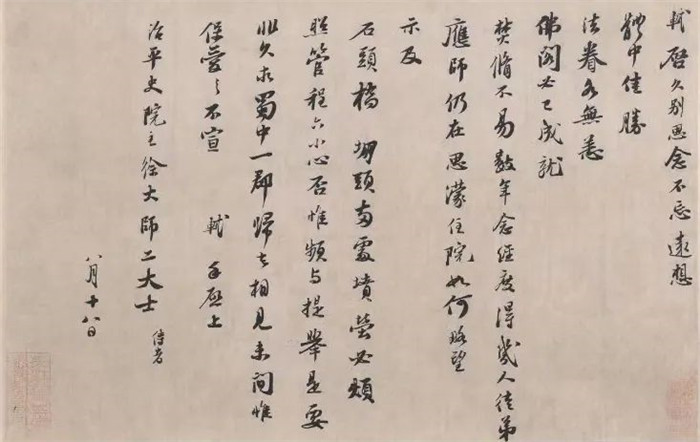 軾啓久别思念不忘遠想
體中佳勝
法眷各無恙
佛閣必已成就
焚脩不易數年念經度得幾人徒弟
應師仍在思濛住院如何略望
示及
石頭橋堋頭兩處墳塋必煩
照管程六小心否惟頻与提舉是要
非久求蜀中一郡歸去相見未間惟
保愛之不宣 軾手啓上
治平史院主徐大師二大士 侍者
八月十八日